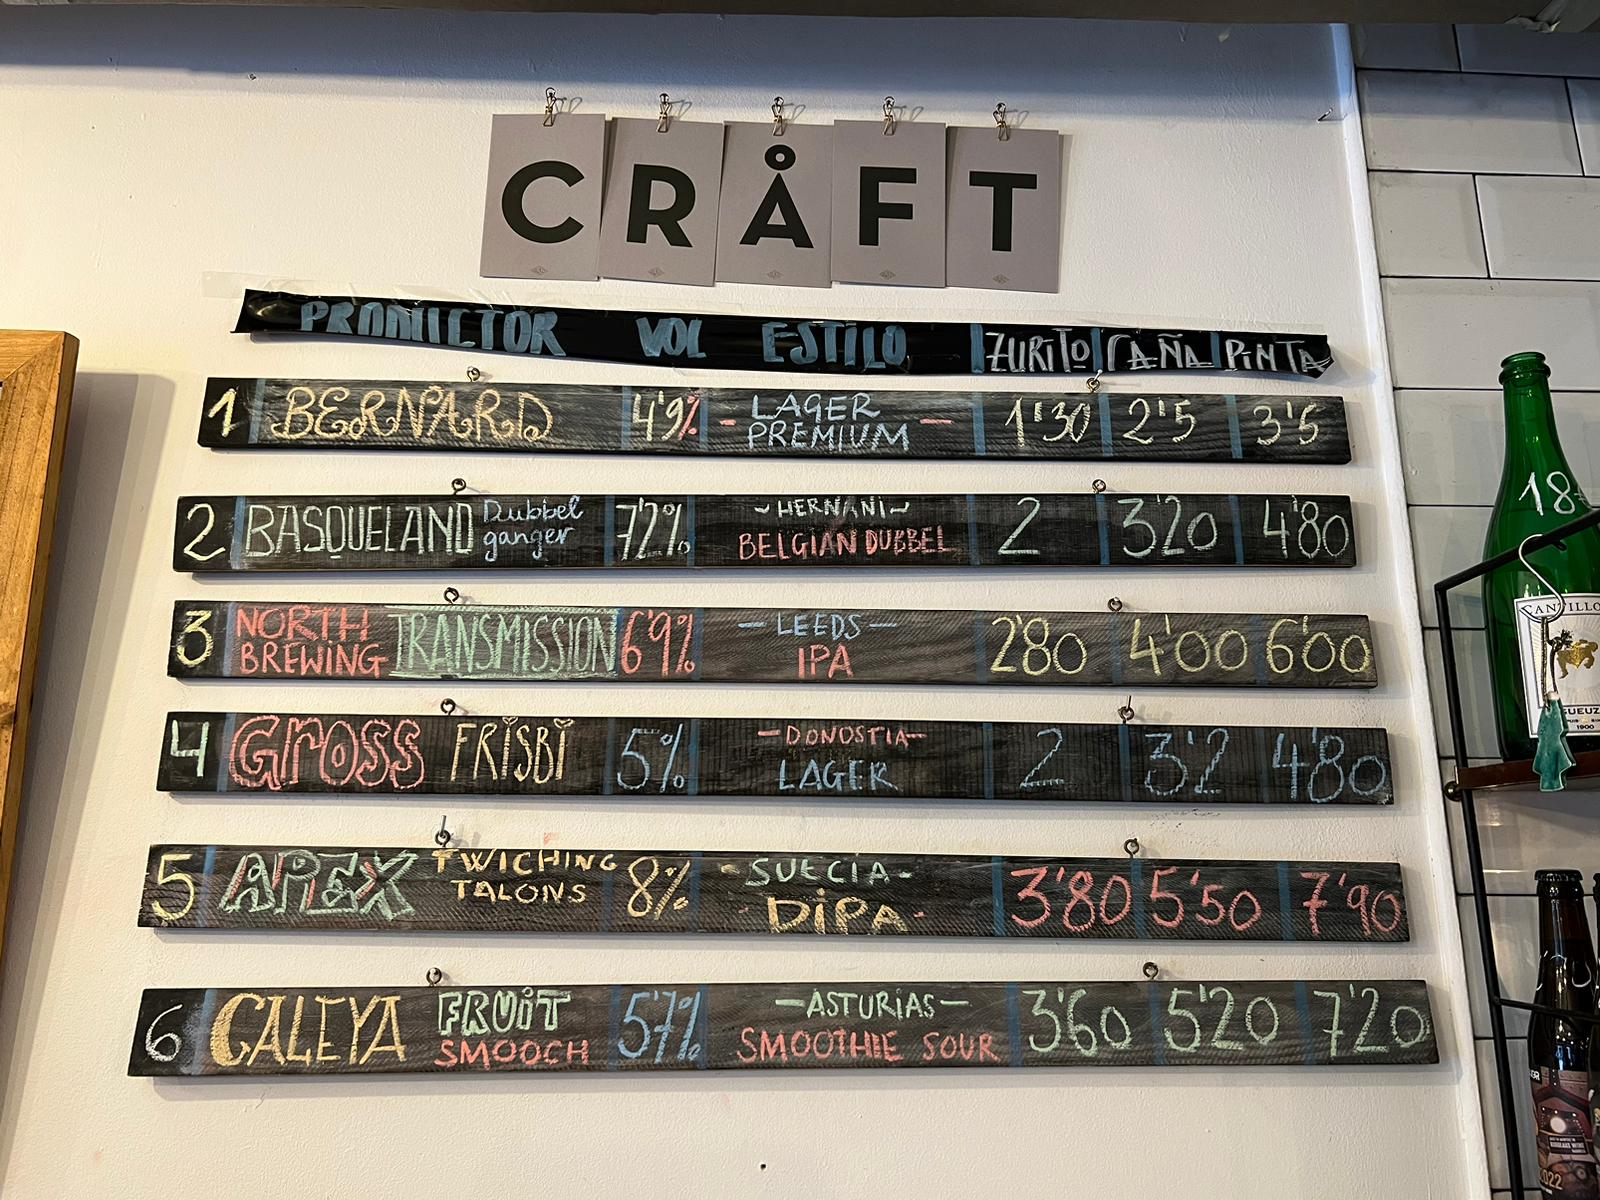 CRÅFT
PRODUCTOR VOL ESTILO ZURITO CAÑA PINTA
1 BERNARD 4'9% - LAGER PREMIUM - 1'30 2'5 3'5
2 BASQUELAND Dubbel ganger 7'2% ~HERNANI~ BELGIAN DUBBEL 2 3'20 4'80
3 NORTH BREWING TRANSMISSION 6'9% -LEEDS- IPA 2'80 4'00 6'00
4 GROSS FRISBI 5% -DONOSTIA- LAGER 2 3'2 4'80
5 APEX TWICHING TALONS 8% -SUECIA- DIPA 3'80 5'50 7'90
6 CALEYA FRUIT SMOOCH 5'7% -ASTURIAS- SMOOTHIE SOUR 3'60 5'20 7'20
18
CANTILLO
GUEUZ
1900
2022